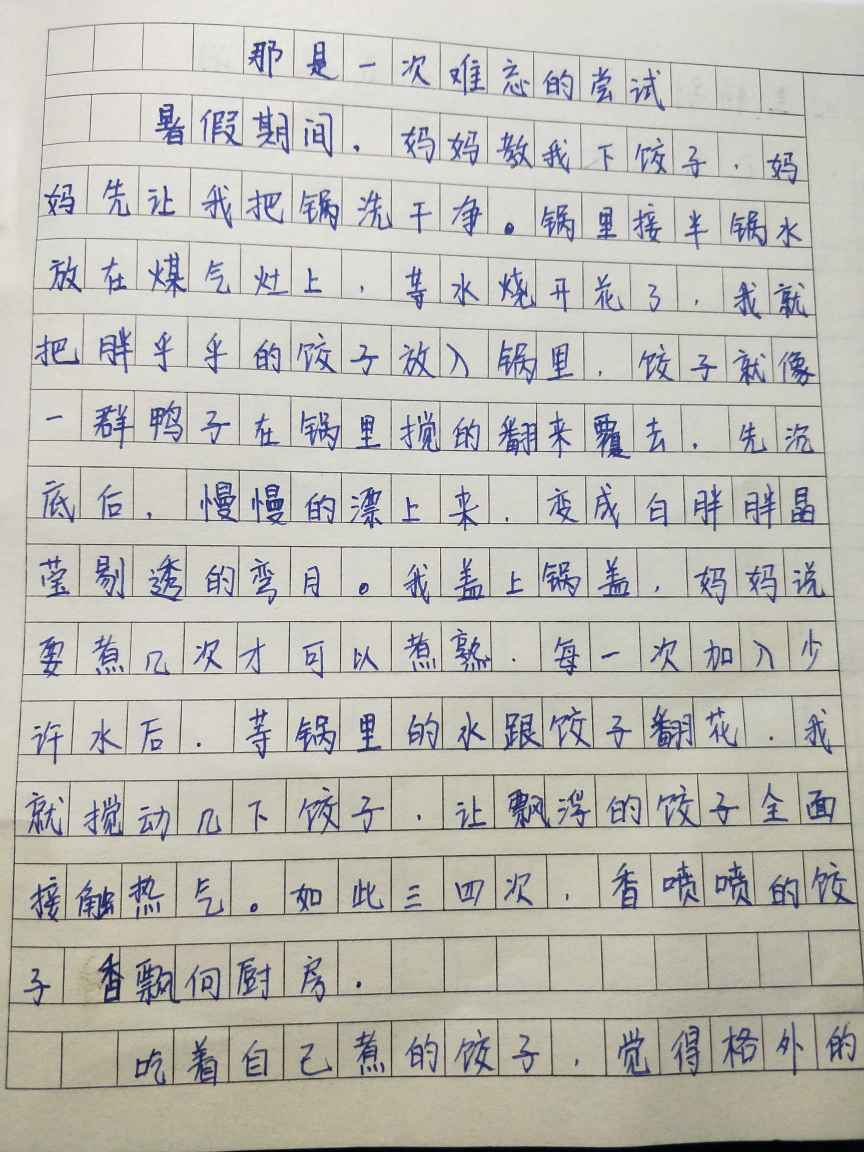 那是一次难忘的尝试
暑假期间，妈妈教我下饺子，妈
妈先让我把锅洗干净。锅里接半锅水
放在煤气灶上，等水烧开花了，我就
把胖乎乎的饺子放入锅里，饺子就像
一群鸭子在锅里搅的翻来覆去，先沉
底后，慢慢的漂上来，变成白胖胖晶
莹剔透的弯月。我盖上锅盖，妈妈说
要煮几次才可以煮熟，每一次加入少
许水后，等锅里的水跟饺子翻花，我
就搅动几下饺子，让飘浮的饺子全面
接触热气。如此三四次，香喷喷的饺
子 香飘何厨房.
吃着自己煮的饺子，觉得格外的